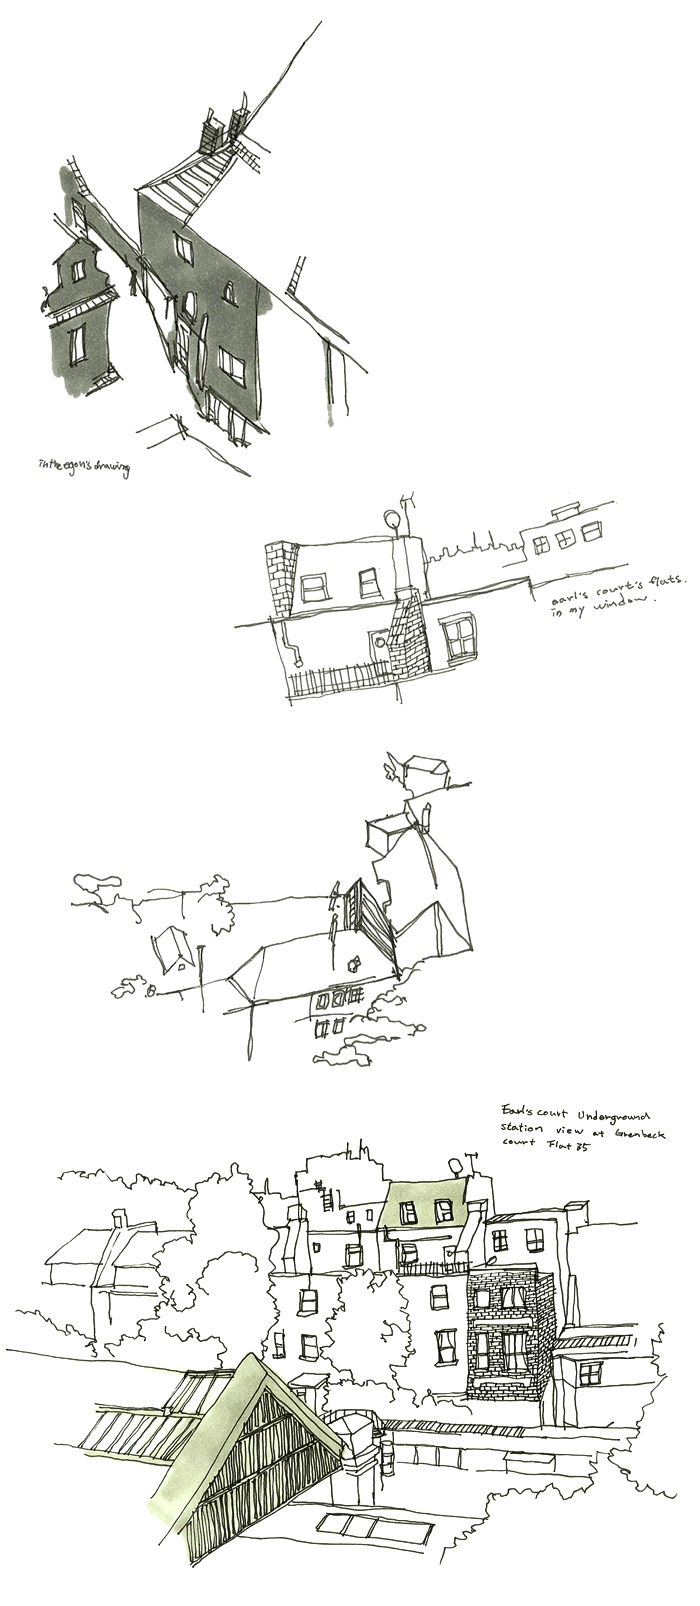 in the egon's drawing
earl's court's flats.
in my window.
Earl's court Underground
station view at Grenbeck
court Flat 35